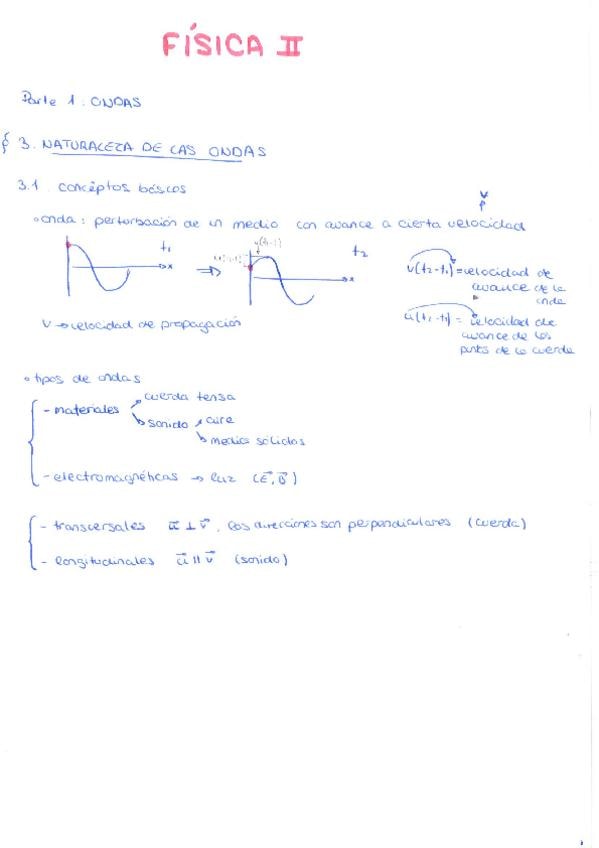 FÍSICA II
Parte 1. ONDAS
3. NATURALEZA DE LAS ONDAS
3.1. conceptos básicos
v
onda: perturbación de un medio con avance a cierta velocidad
t₁
x
⇒
t₂
x
v(t₂-t₁) = velocidad de avance de la onda
v → velocidad de propagación
u(t₂-t₁) = velocidad de avance de los puntos de la cuerda
tipos de ondas
- materiales → cuerda tensa
→ sonido → aire
→ medios sólidos
- electromagnéticas → luz (E⃗, B⃗)
- transversales u⃗ ⊥ v⃗, las direcciones son perpendiculares (cuerda)
- longitudinales u⃗ || v⃗ (sonido)